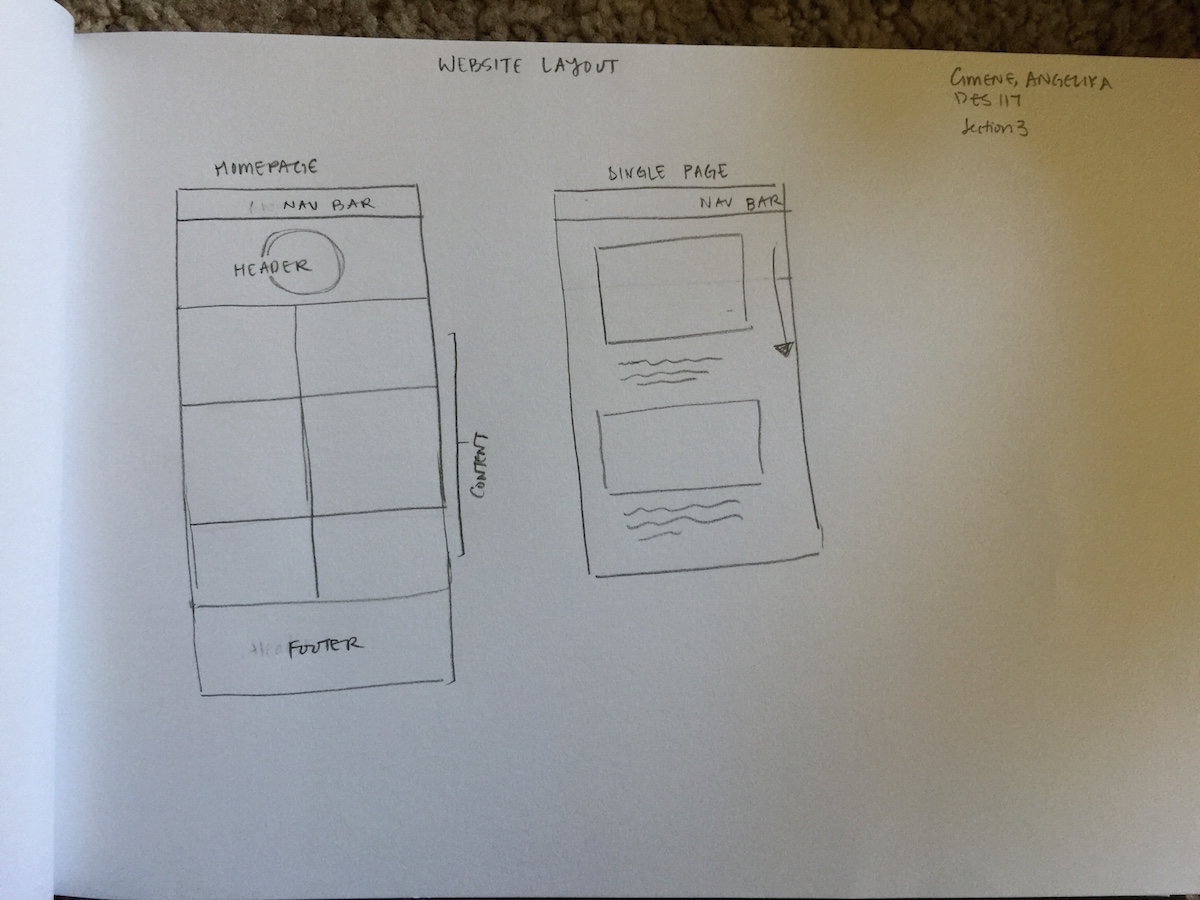 WEBSITE LAYOUT
GIMENE, ANGELIKA
DES 117
Section 3
HOMEPAGE
NAV BAR
HEADER
CONTENT
FOOTER
SINGLE PAGE
NAV BAR